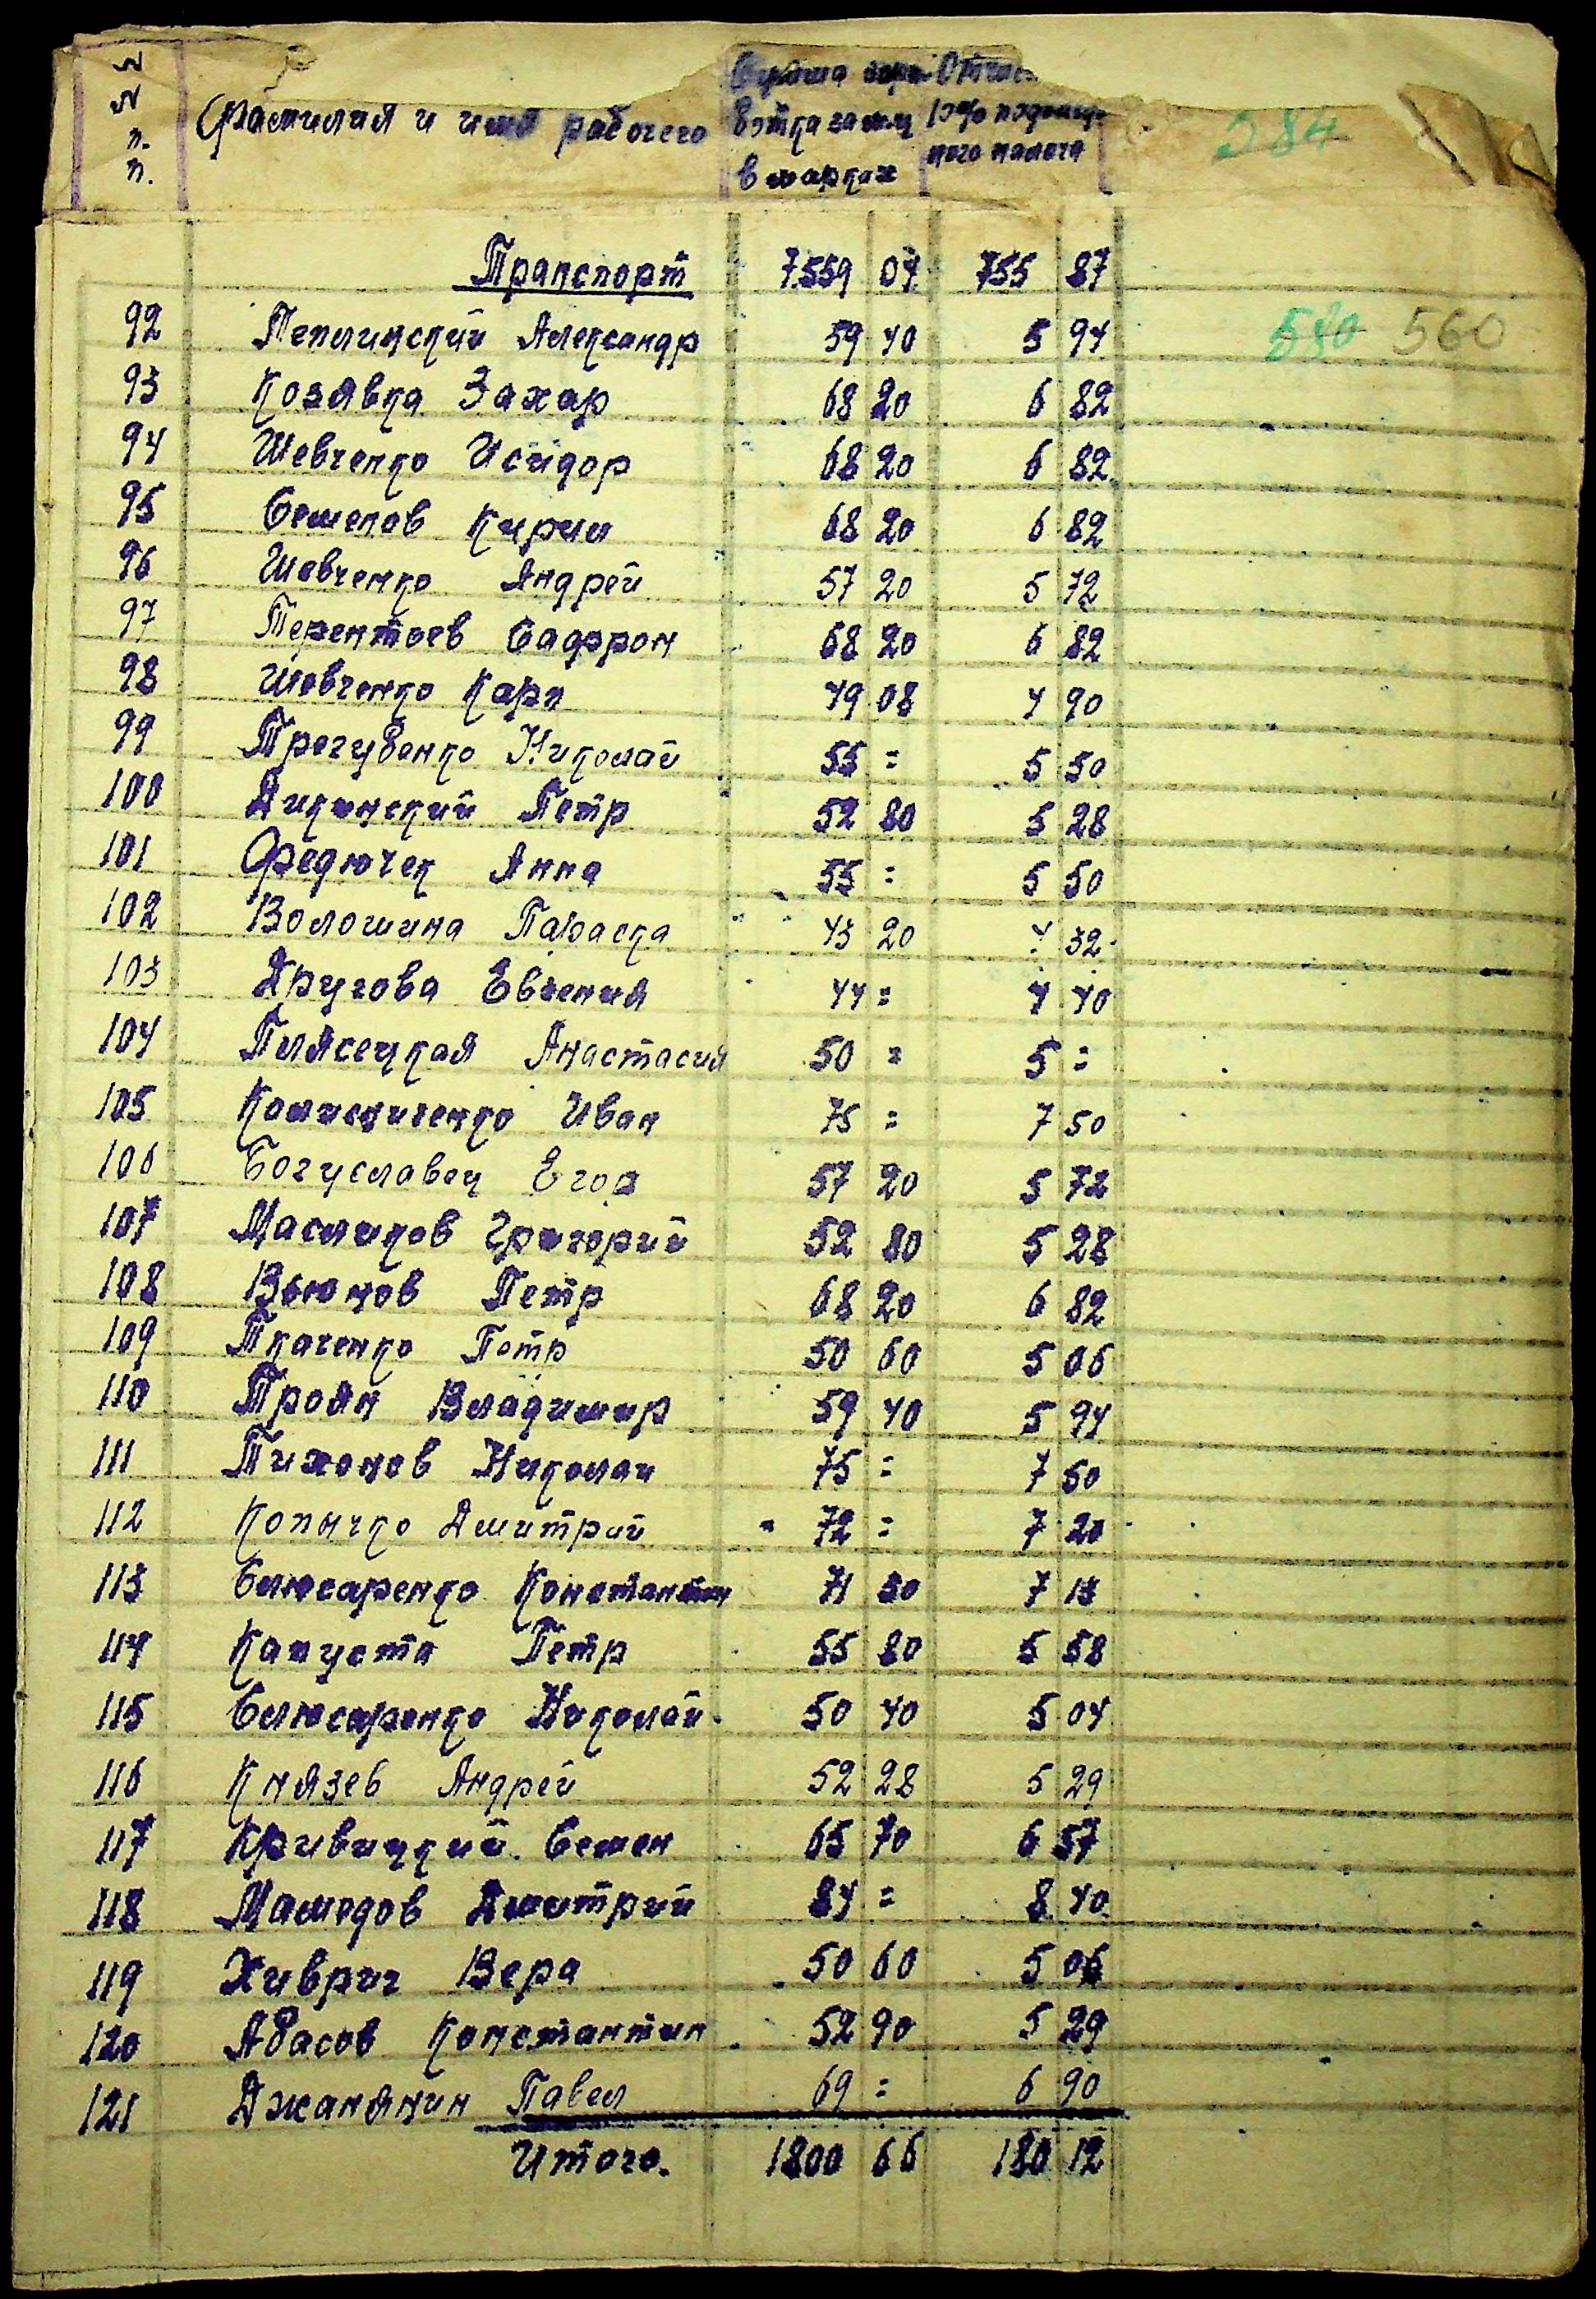 № № п. п.
Фамилия и имя рабочего
в марках
10% подоход ного налога
584
Транспорт 7559 04 755 87
580 560
92 Теплинский Александр 59 40 5 94
93 Козявка Захар 68 20 6 82
94 Шевченко Исидор 68 20 6 82
95 Семенов Кирил 68 20 6 82
96 Шевченко Андрей 57 20 5 72
97 Терентьев Сафрон 68 20 6 82
98 Шевченко Карп 49 08 4 90
99 Трегубенко Николай 55 = 5 50
100 Дикинский Петр 52 80 5 28
101 Федючек Анна 55 = 5 50
102 Волошина Параска 43 20 4 32
103 Другова Евгения 44 = 4 40
104 Плясецкая Анастасия 50 = 5 =
105 Иван 75 = 7 50
106 Богуславец Егор 57 20 5 72
107 Масликов Григорий 52 80 5 28
108 Вьюнов Петр 68 20 6 82
109 Ткаченко Петр 50 60 5 06
110 Троян Владимир 59 40 5 94
111 Тихонов Николай 75 = 7 50
112 Копычко Дмитрий 72 = 7 20
113 Слюсаренко Константин 71 30 7 13
114 Капуста Петр 55 80 5 58
115 Слюсаренко Николай 50 40 5 04
116 Князев Андрей 52 28 5 29
117 Кривицкий Семен 65 70 6 57
118 Мамедов Дмитрий 84 = 8 40
119 Хиврич Вера 50 60 5 06
120 Абасов Константин 52 90 5 29
121 Джанянин Павел 69 = 6 90
Итого. 1800 66 180 12